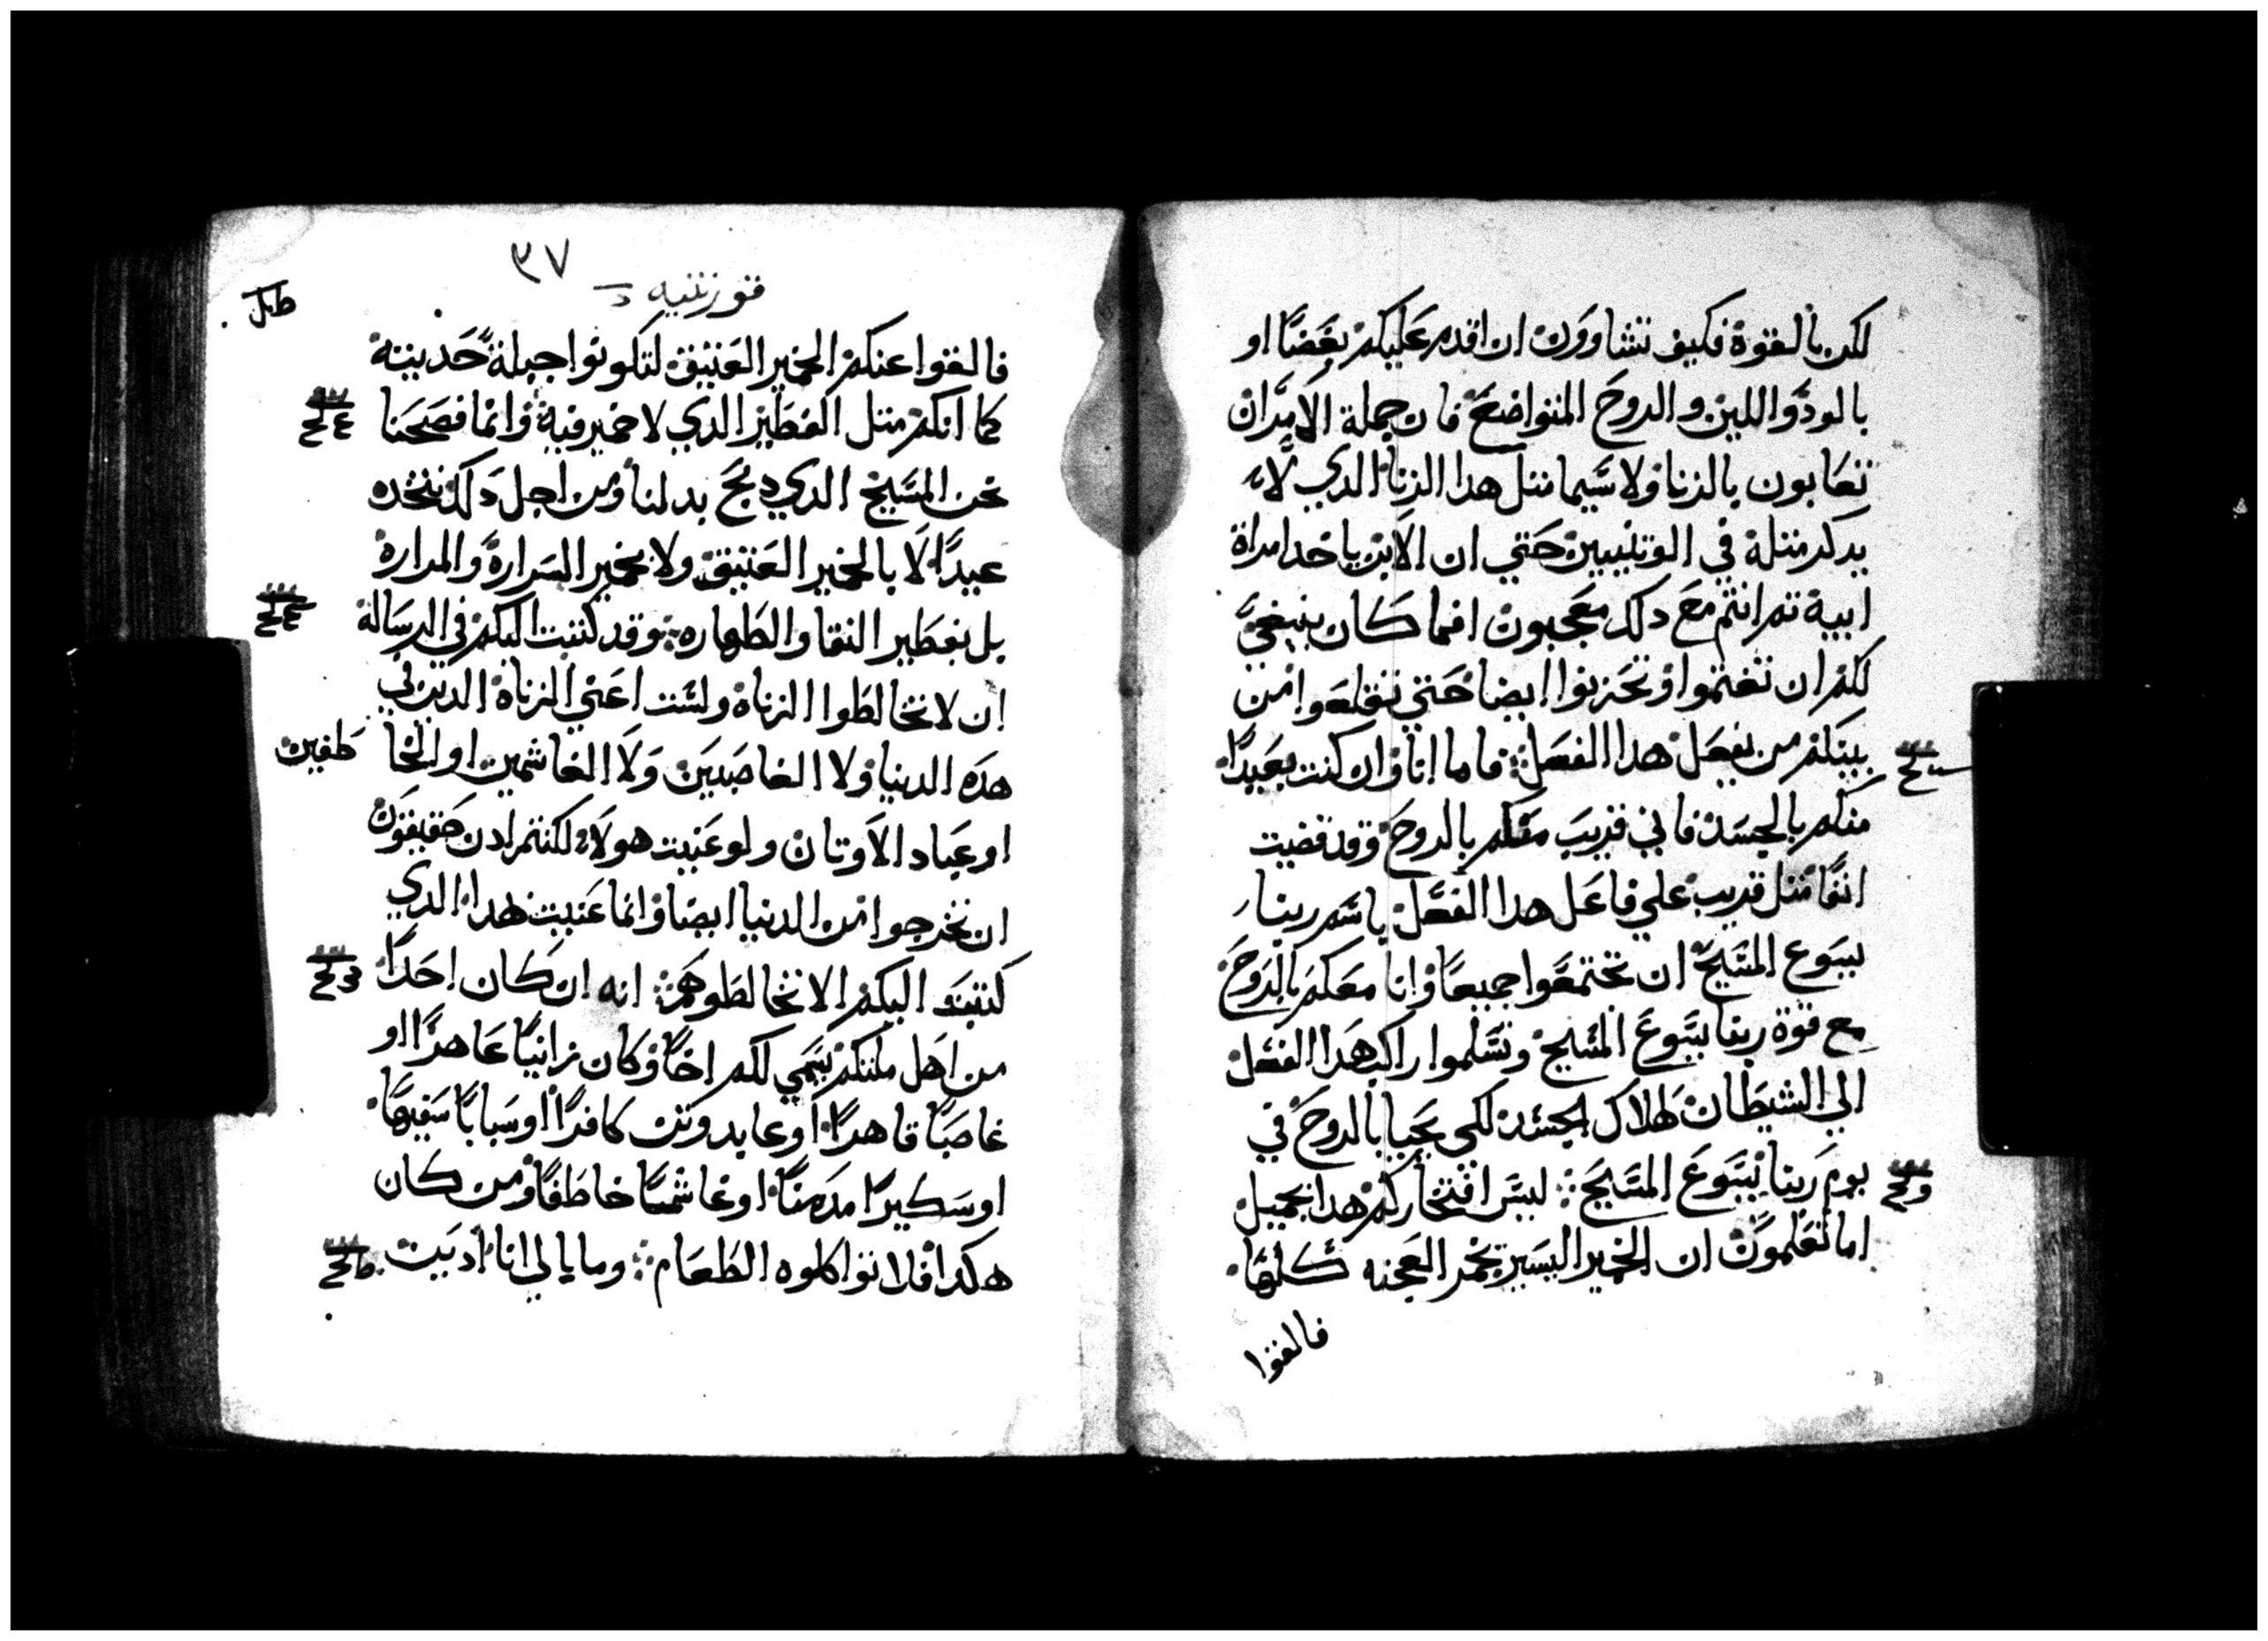 لكن بالقوة فكيف تشاوون ان اقدم عليكم بغضا او
بالود واللين والروح المتواضع فان جملة الامر ان
تعابون بالزنا ولا سيما متل هدا الزنا الدي لا
يدكر متله في الوتنيين حتي ان الابن ياخد امراة
ابيه تم انتم مع دلك معجبون افما كان ينبغي
لكم ان تغتموا وتحزنوا ايضا حتي تقلعوا من
بينكم من يفعل هدا الفعل فاما انا وان كنت بعيدا
منكم بالجسد فاني قريب معكم بالروح وقد قضيت
انفا متل قريب علي فاعل هدا الفعل باسم ربنا
يسوع المسيح ان تجتمعوا جميعا وانا معكم بالروح
مع قوة ربنا يسوع المسيح وتسلموا راكب هدا الفعل
الي الشيطان لهلاك الجسد لكي يحيا بالروح في
يوم ربنا يسوع المسيح ليس افتخاركم هدا بجميل
اما تعلمون ان الخمير اليسير يخمر العجنه كلها
فالقوا
٣٧
قورنتيه
فالقوا عنكم الخمير العتيق لتكونوا جبلة حديتة
كما انكم متل الفطير الدي لا خمير فيه وانما فصحنا
نحن المسيح الدي دبح بدلنا ومن اجل دلك نتخده
عيدا لا بالخمير العتيق ولا بخمير السرارة والمرارة
بل بفطير النقا والطهاره وقد كتبت اليكم في الرسالة
ان لا تخالطوا الزناة ولست اعني الزناة الدين في
هده الدنيا ولا الغاصبين ولا الغاشمين او الخا طفين
او عباد الاوتان ولو عنيت هولاء لكنتم ادن حقيقون
ان تخرجوا من الدنيا ايضا وانما عنيت هدا الدي
كتبت اليكم الا تخالطوهم انه ان كان احدا
من اهل ملتكم يسمي لكم اخا وكان زانيا عاهرا او
غاصبا قاهرا او عابد وتن كافرا او سبابا سفيها
او سكيرا مدمنا او غاشما خاطفا ومن كان
هكدا فلا تواكلوه الطعام وما بالي انا ادبت